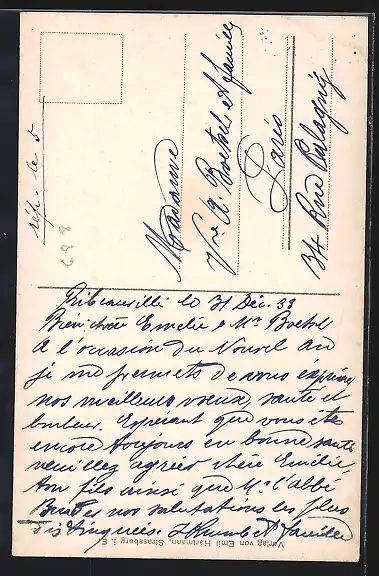 rép. le 5
698
Madame
Vve A. Boetsch et famille
Paris
34 Rue Balagny
Ribeauvillé le 31 Déc. 33
Bien chère Emélie & Mr Boetsch
A l'occasion du Nouvel an
je me permets de vous exprimer
nos meilleurs voeux santé et
bonheur. Espérant que vous êtes
encore toujours en bonne santé
veuillez agréer chère Emélie
ton fils ainsi que Mr l'abbé
nos salutations les plus
distinguées. et famille
Verlag von Emil Hartmann, Strassburg i. E.